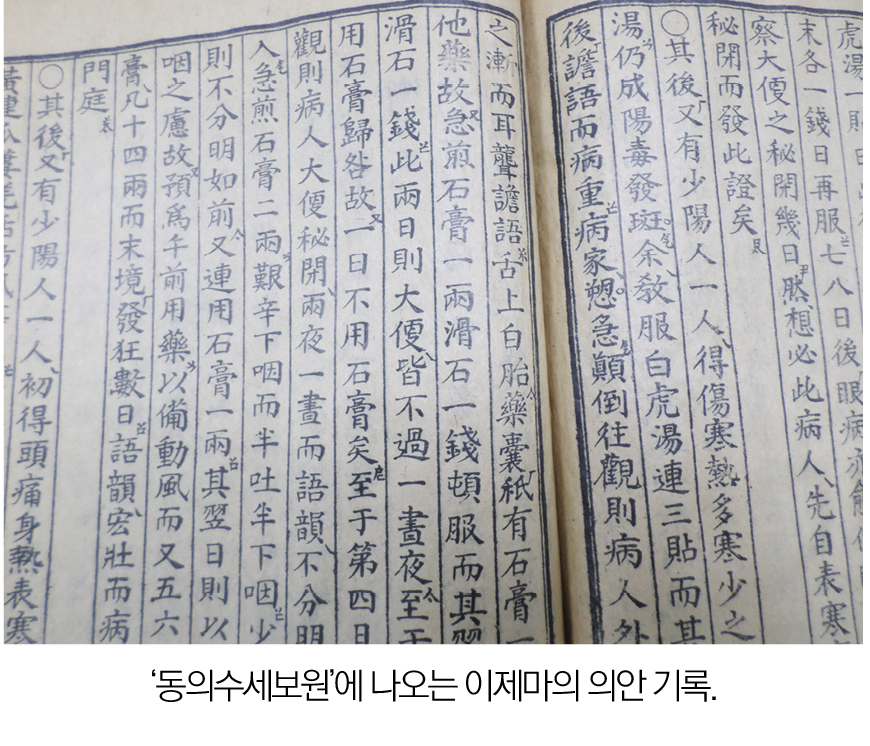 虎湯一貼日
末各一錢日再服七八日後眼病亦愈
察大便之秘閉幾日然想必此病人先自表寒
秘閉而發此證矣
○其後又有少陽人一人得傷寒熱多寒少之
湯仍成陽毒發斑余教服白虎湯連三貼而其
後譫語而病重病家愬急顚倒往觀則病人外
之漸而耳聾譫語舌上白胎藥囊秪有石膏一
他藥故急煎石膏一兩滑石一錢頓服而其翌
滑石一錢此兩日則大便皆不過一晝夜至于
用石膏歸咎故一日不用石膏矣至于第四日
觀則病人大便秘閉兩夜一晝而語韻不分明
入急煎石膏二兩艱辛下咽而半吐半下咽少
則不分明如前又連用石膏一兩其翌日則以
咽之慮故預爲午前用藥以備動風而又五六
膏凡十四兩而末境發狂數日語韻宏壯而病
門庭
○其後又有少陽人一人初得頭痛身熱表寒
黃連瓜蔞
‘동의수세보원’에 나오는 이제마의 의안 기록.